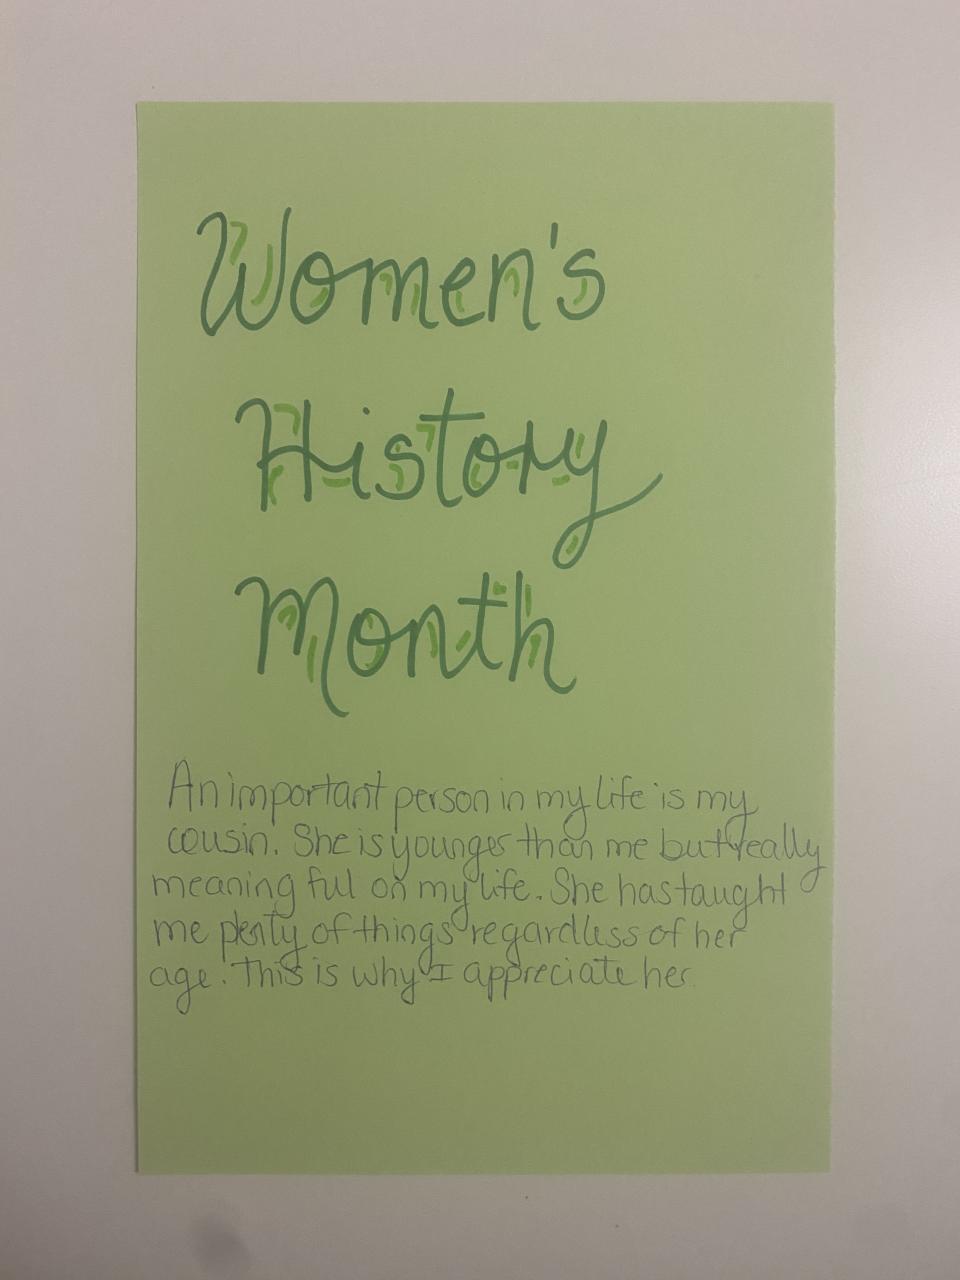 Women's
History
Month
An important person in my life is my
cousin. She is younger than me but really
meaning ful on my life. She has taught
me plenty of things regardless of her
age. This is why I appreciate her.